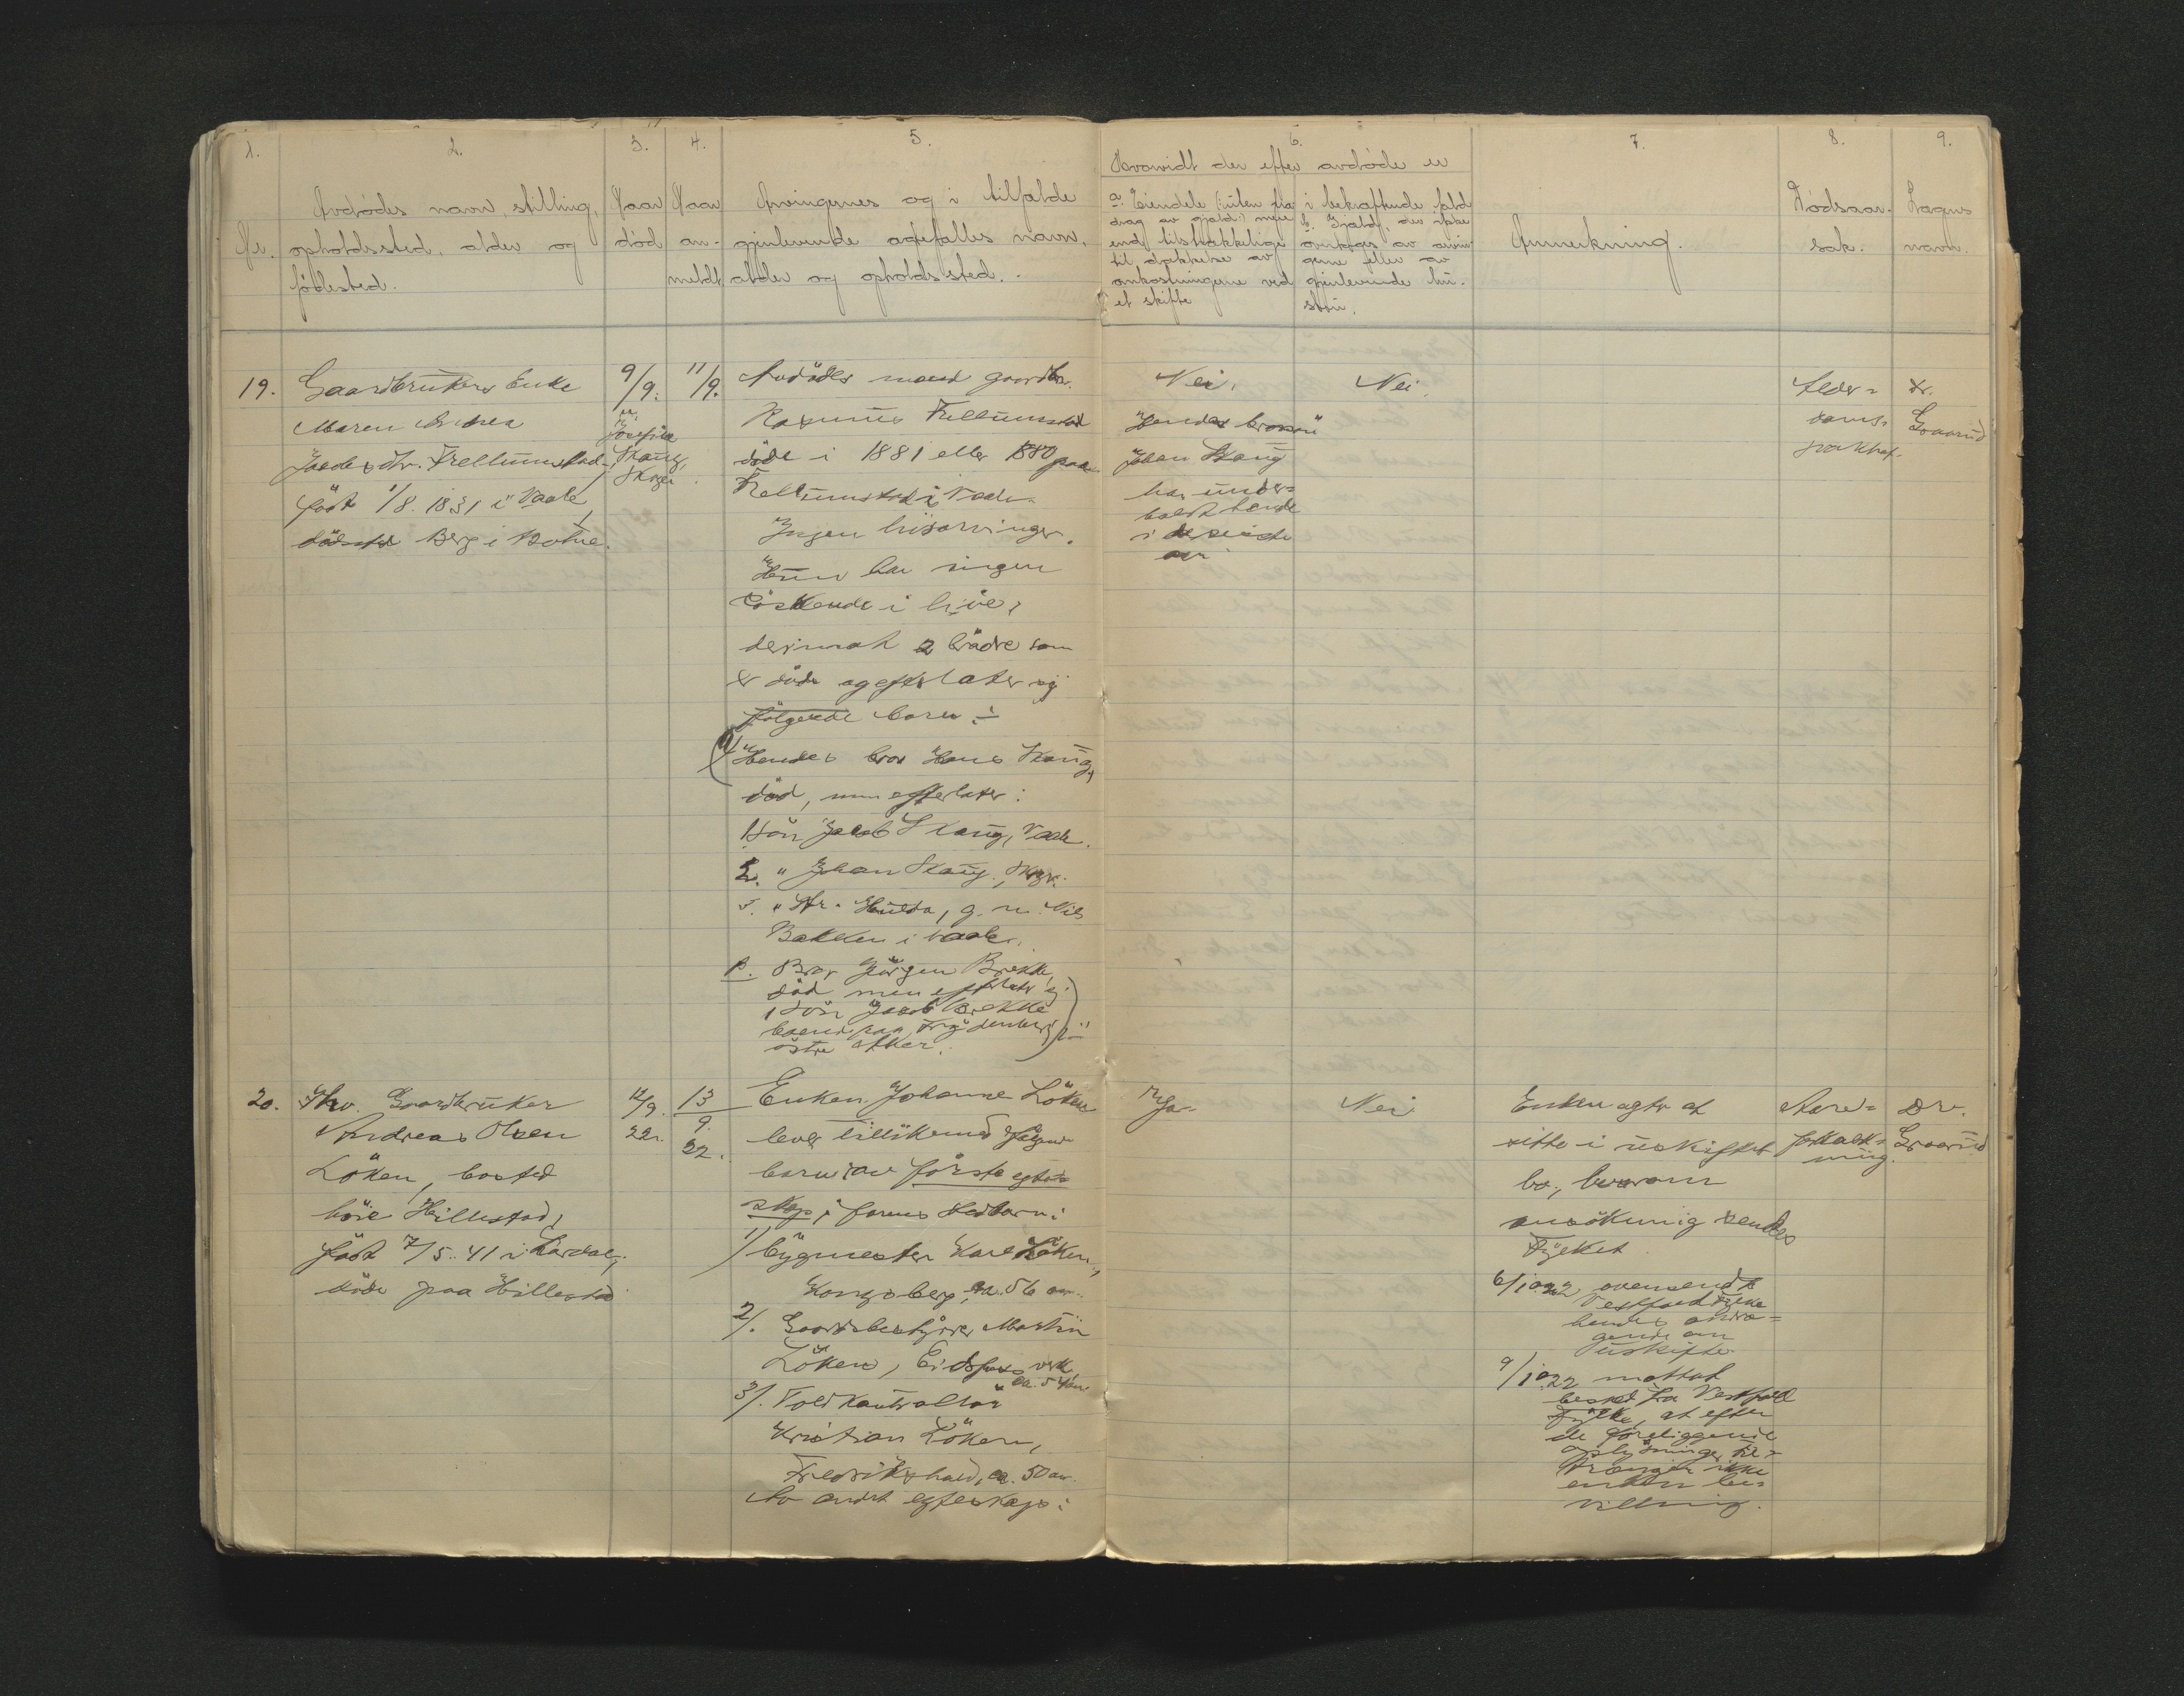 1.
2.
3.
4.
5.
6.
7.
8.
9.
Nr.
Avdødes navn, stilling,
opholdssted, alder og
fødested.
Naar
død
Naar
an-
meldt
Arvingernes og i tilfælde
gjenlevende ægtefælles navn,
alder og opholdssted.
Hvorvidt der efter avdøde er
a. Eiendele (uten fra
drag av gjæld) mere
end tilstrækkelige
til dækkelse av
omkostningerne ved
et skifte
i bekræftende fald
b. Gjæld, der ikke
overtages av arvin
gerne eller av
gjenlevende hu-
stru.
Anmerkning.
Dødsaar-
sak.
Lægens
navn.
19.
Gaardbrukers Enke
Maren Andrea
Jacobsdtr. Trellumstad,
født 1/8. 1831 i Vaale,
død Berg i Botne.
9/9.
Skaug,
11/9.
Avdødes mand gaardbr.
Rasmus Trellumstad
døde i 1881 eller 1880 paa
Trellumstad i Vaale.
Ingen livsarvinger.
Hun har ingen
søskende i live,
derimot 2 brødre som
er døde og efterlater sig
følgende barn:
Hendes bror Hans Skaug,
død, men efterlater:
1 Søn Jacob Skaug, Vaale.
2. " Johan Skaug,
3. " Dtr. Hulda, g. m. Nils
Bakken i Vaale.
Bror Jørgen Brekke,
død men efterlater sig
1 Søn Jacob Brekke
boende paa
østre Aker.
Nei.
Hendes brorsøn
Johan Skaug
har under-
holdt hende
i de sidste
aar
Nei.
Alder-
doms-
svakhet.
Dr.
Graarud
20.
Fhv. Gaardbruker
Andreas Olsen
Løken, bosted
høie Hillestad,
født 7/5. 41 i Lardal,
døde paa Hillestad
12/9.
22.
13
9.
22.
Enken Johanne Løken
lever tillikemed følgende
barn av første egte
skap, farens
1) bygmester Karl Løken,
Kongsberg, ca. 56 aar.
2/. Gaardsbestyrer Martin
Løken, Eidsfoss verk,
ca. 54 aar
3/. Toldkontrollør
Kristian Løken,
Fredrikshald, ca. 50 aar.
Av andet egteskap:
Ja.
Nei
Enken agter at
sitte i uskiftet
bo, hvorom
ansøkning sendes
Fylket
6/10 22 oversendt
Vestfold Fylke
hendes andra-
gende om
uskifte.
9/10 22 mottat
besked fra Vestfold
Fylke, at efter
de foreliggende
oplysninger til-
trænger ikke
enken be-
villing.
Aare-
forkalk-
ning.
Dr.
Graarud